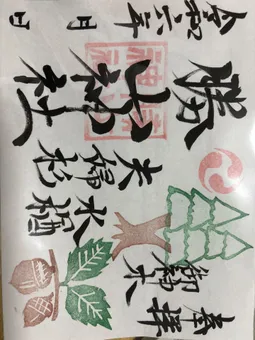 奉拝
御神木
水楢
夫婦
勝山神社
令和六年
月 日